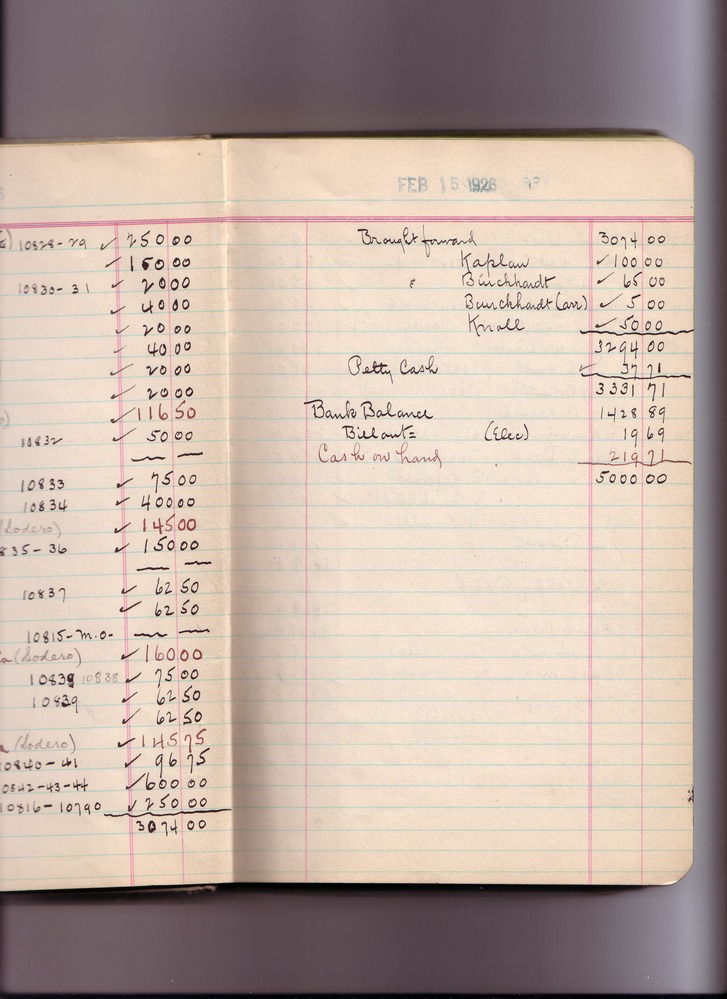 10828-29 ✓ 250 00
✓ 150 00
10830-31 ✓ 20 00
✓ 40 00
✓ 20 00
✓ 40 00
✓ 20 00
✓ 20 00
✓ 116 50
10832 ✓ 50 00
— —
10833 ✓ 75 00
10834 ✓ 400 00
(Sodero) ✓ 145 00
835-36 ✓ 150 00
— —
10837 ✓ 62 50
✓ 62 50
10815-M.O- — —
(Sodero) ✓ 160 00
10839 10838 ✓ 75 00
10839 ✓ 62 50
✓ 62 50
(Sodero) ✓ 145 75
10840-41 ✓ 96 75
10842-43-44 ✓ 600 00
10816-10790 ✓ 250 00
3074 00
FEB 15 1926
Brought forward 3074 00
Kaplan ✓ 100 00
Burckhardt ✓ 65 00
Burckhardt (arr) ✓ 5 00
Knoll ✓ 50 00
3294 00
Petty Cash ✓ 37 71
3331 71
Bank Balance 1428 89
(Elec) 19 69
Cash on hand 219 71
5000 00